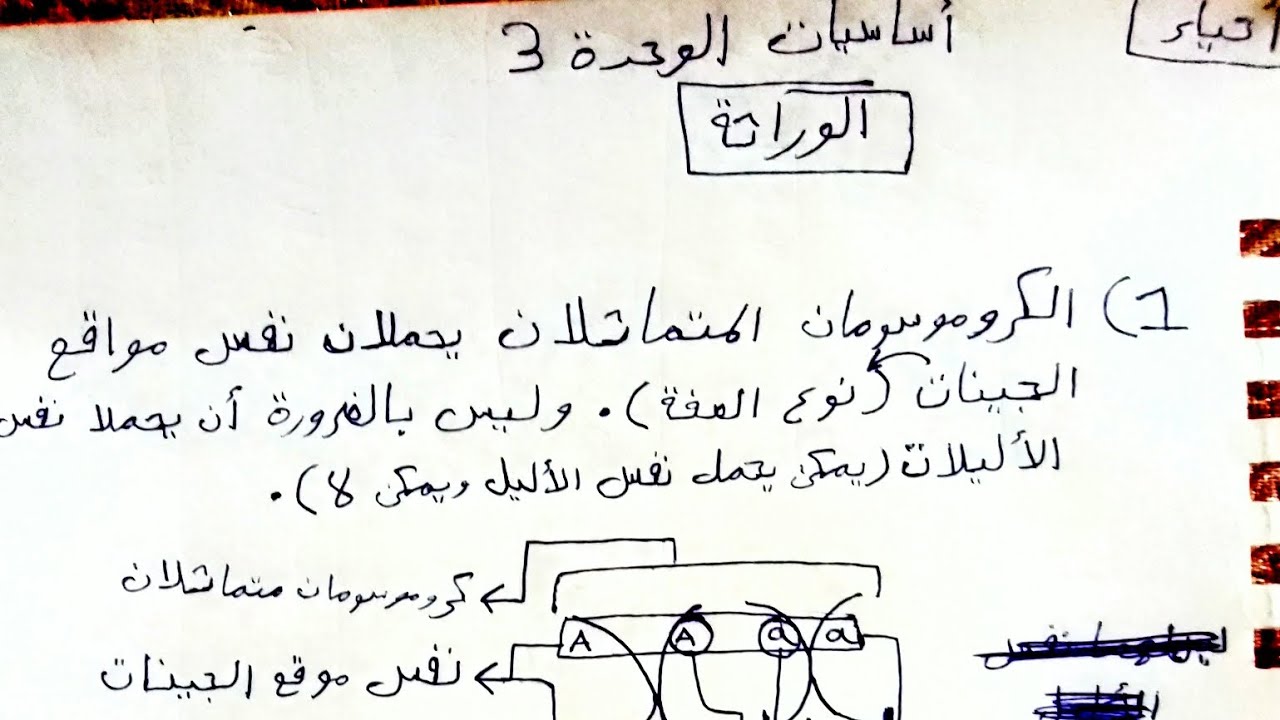 أحياء
أساسيات الوحدة 3
الوراثة
1) الكروموسومان المتماثلان يحملان نفس مواقع
الجينات (نوع الصفة). وليس بالضرورة أن يحملا نفس
الأليلات (يمكن يحمل نفس الأليل ويمكن لا).
كروموسومان متماثلان
A A a a
نفس موقع الجينات